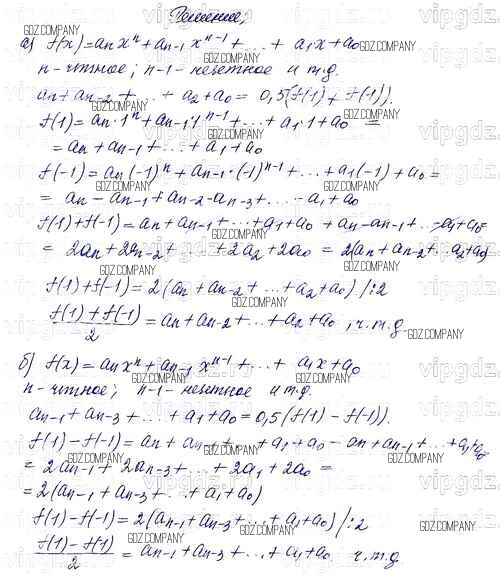 Решение:
а) f(x)=aₙxⁿ+aₙ₋₁xⁿ⁻¹+...+a₁x+a₀
n-чётное; n-1-нечётное и т.д.
aₙ+aₙ₋₂+...+a₂+a₀=0,5(f(1)+f(-1)).
f(1)=aₙ·1ⁿ+aₙ₋₁·1ⁿ⁻¹+...+a₁·1+a₀=
=aₙ+aₙ₋₁+...+a₁+a₀
f(-1)=aₙ(-1)ⁿ+aₙ₋₁·(-1)ⁿ⁻¹+...+a₁(-1)+a₀=
=aₙ-aₙ₋₁+aₙ₋₂-aₙ₋₃+...-a₁+a₀
f(1)+f(-1)=aₙ+aₙ₋₁+...+a₁+a₀+aₙ-aₙ₋₁+...-a₁+a₀=
=2aₙ+2aₙ₋₂+...+2a₂+2a₀=2(aₙ+aₙ₋₂+...a₂+a₀)
f(1)+f(-1)=2(aₙ+aₙ₋₂+...+a₂+a₀)/:2
(f(1)+f(-1))/2=aₙ+aₙ₋₂+...+a₂+a₀, ч.т.д.
б) f(x)=aₙxⁿ+aₙ₋₁xⁿ⁻¹+...+a₁x+a₀
n-чётное; n-1-нечётное и т.д.
aₙ₋₁+aₙ₋₃+...+a₁+a₀=0,5(f(1)-f(-1)).
f(1)-f(-1)=aₙ+aₙ₋₁+...+a₁+a₀-aₙ+aₙ₋₁+...+a₁+a₀
=2aₙ₋₁+2aₙ₋₃+...+2a₁+2a₀=
=2(aₙ₋₁+aₙ₋₃+...+a₁+a₀)
f(1)-f(-1)=2(aₙ₋₁+aₙ₋₃+...+a₁+a₀)/:2
(f(1)-f(1))/2=aₙ₋₁+aₙ₋₃+...+a₁+a₀ ч.т.д.